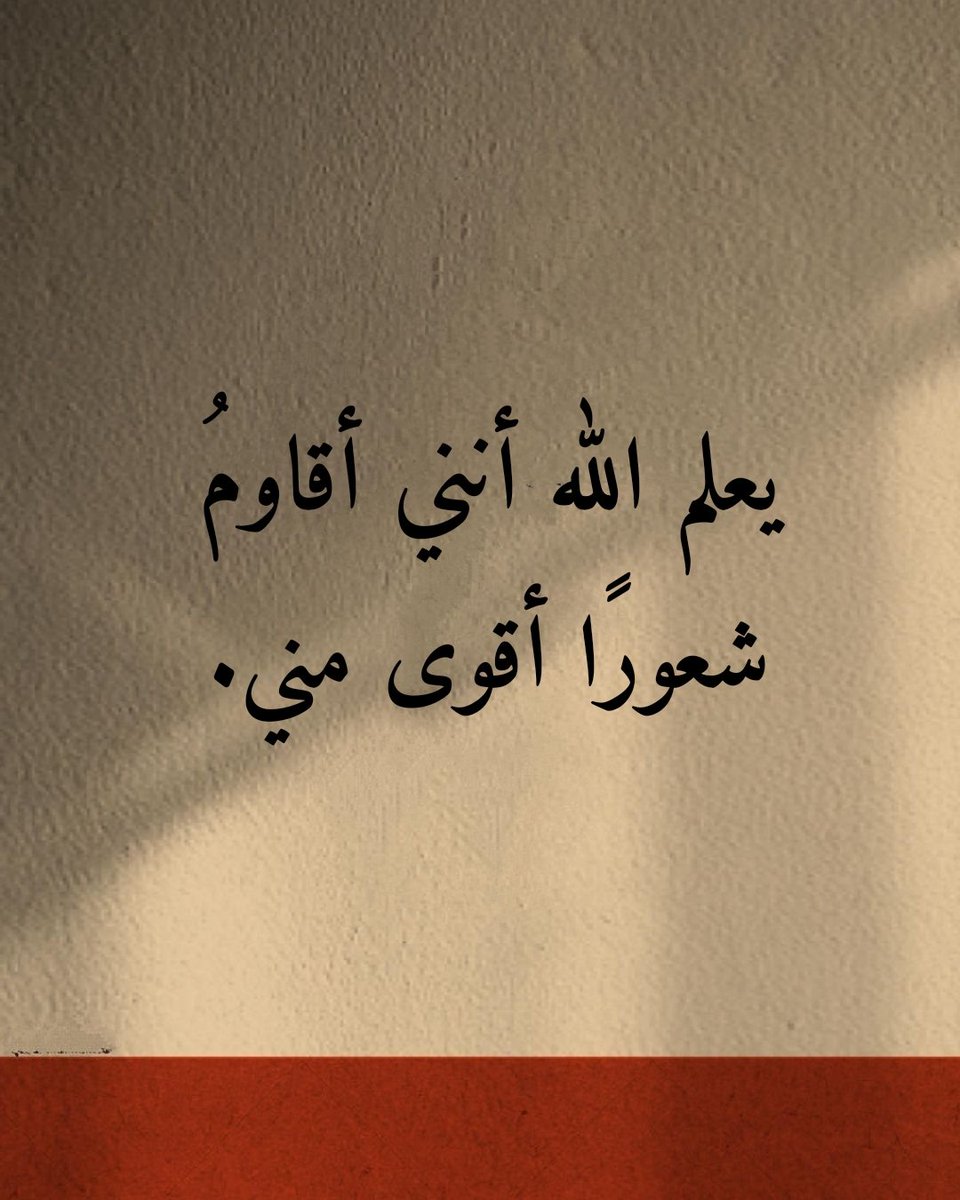 يعلم الله أنني أقاومُ
شعورًا أقوى مني.